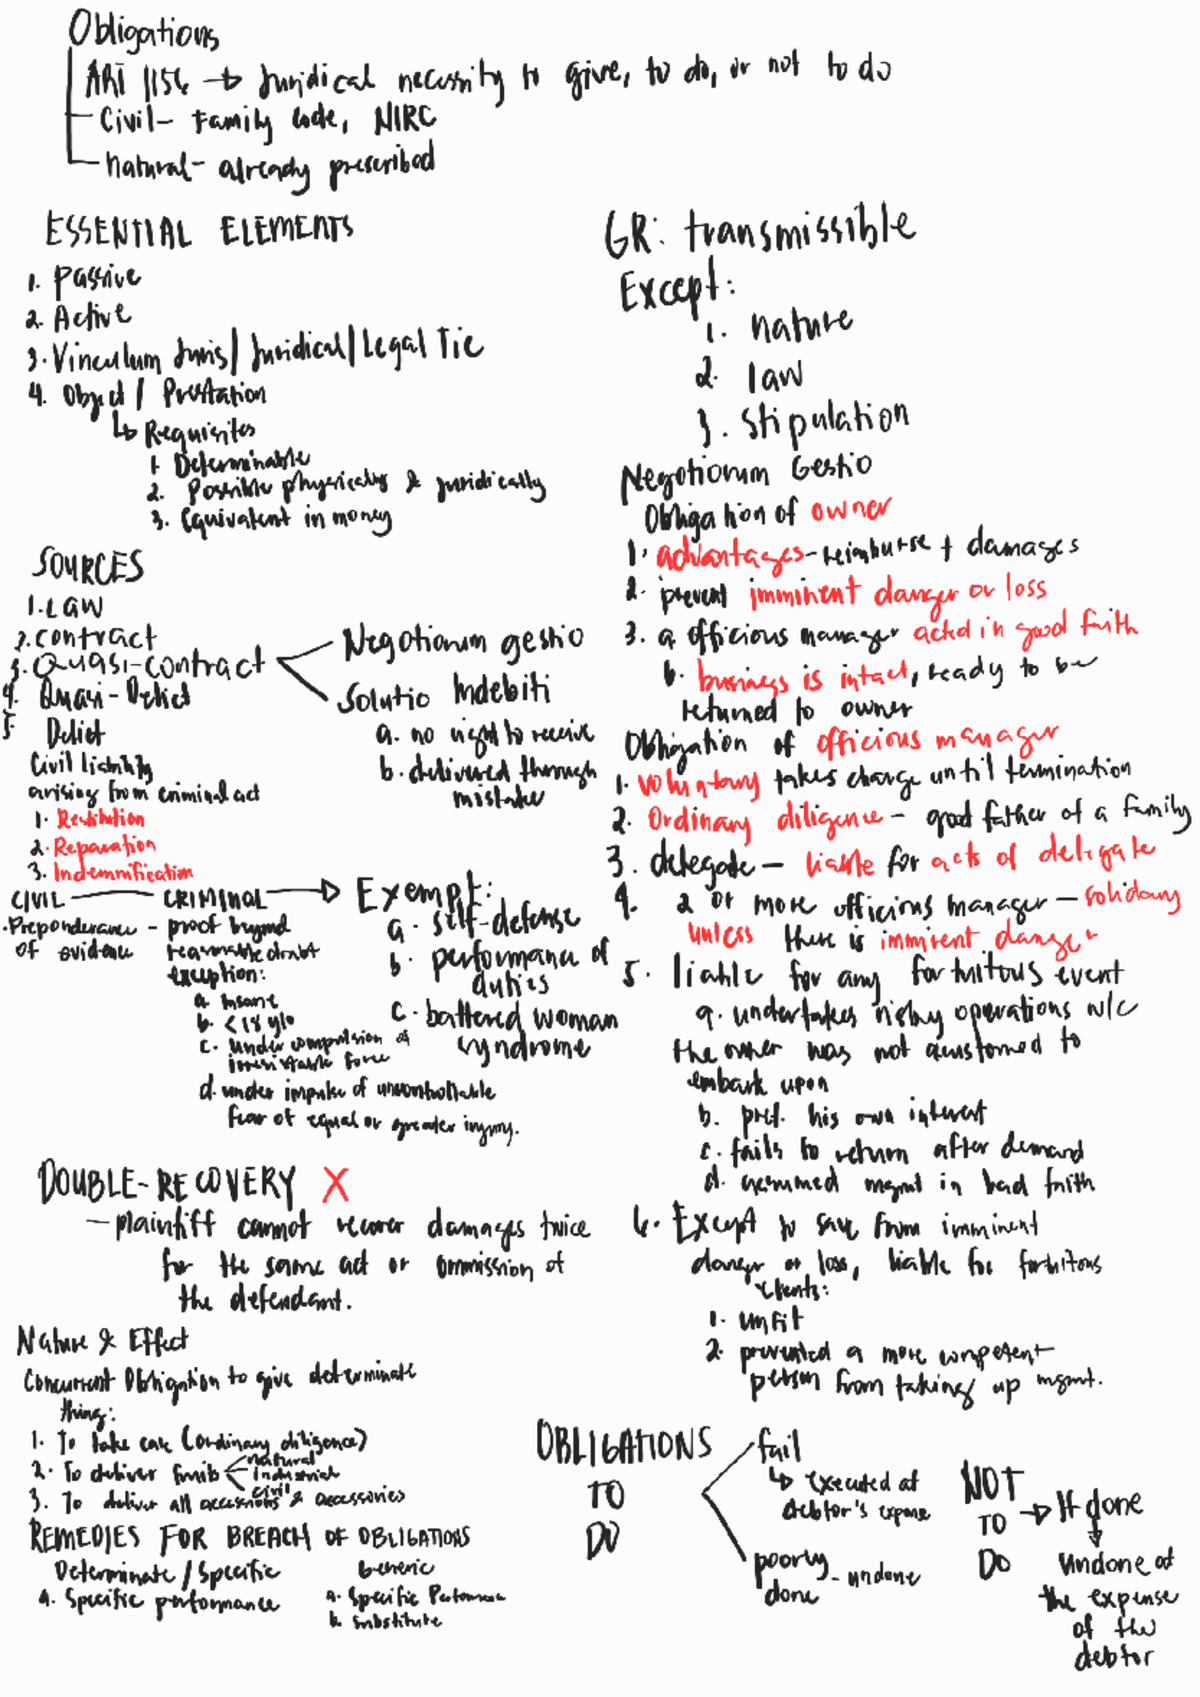 Obligations
ART 1156 → Juridical necessity to give, to do, or not to do
Civil - Family Code, NIRC
Natural - already prescribed
ESSENTIAL ELEMENTS
1. Passive
2. Active
3. Vinculum Juris / Juridical / Legal Tie
4. Object / Prestation
↳ Requisites
1. Determinable
2. Possible physically & juridically
3. Equivalent in money
SOURCES
1. Law
2. contract
3. Quasi-contract
4. Quasi-Delict
5. Delict
Negotiorum gestio
Solutio Indebiti
a. no right to receive
b. delivered through
mistake
Civil liability
arising from criminal act
1. Restitution
2. Reparation
3. Indemnification
CIVIL — CRIMINAL → Exempt:
- Preponderance
of evidence
- proof beyond
reasonable doubt
exception:
a. Insane
b. <18 y/o
c. under compulsion of
irresistable force
d. under impulse of uncontrollable
fear of equal or greater injury.
a. self-defense
b. performance of
duties
c. battered woman
syndrome
DOUBLE-RECOVERY X
— plaintiff cannot recover damages twice
for the same act or ommission of
the defendant.
Nature & Effect
Concurrent Obligation to give determinate
thing:
1. To take care (ordinary diligence)
2. To deliver fruits < natural
industrial
civil
3. To deliver all accessions & accessories
REMEDIES FOR BREACH OF OBLIGATIONS
Determinate / Specific
a. Specific performance
Generic
a. Specific Performance
b. Substitute
GR: transmissible
Except:
1. nature
2. law
3. stipulation
Negotiorum Gestio
Obligation of owner
1. advantages - reimburse + damages
2. prevent imminent danger or loss
3. a officious manager acted in good faith
b. business is intact, ready to be
returned to owner
Obligation of officious manager
1. voluntary takes charge until termination
2. Ordinary diligence - good father of a family
3. delegate - liable for acts of delegate
4. 2 or more officious manager - solidary
unless there is imminent danger
5. liable for any fortuitous event
a. undertakes risky operations w/c
the owner was not accustomed to
embark upon
b. pref. his own interest
c. fails to return after demand
d. assumed mgmt in bad faith
6. Except to save from imminent
danger or loss, liable for fortuitous
events:
1. unfit
2. prevented a more competent
person from taking up mgmt.
OBLIGATIONS
TO
DO
fail
↳ executed at
debtor's expense
poorly
done - undone
NOT
TO
DO
→ If done
↓
undone at
the expense
of the
debtor